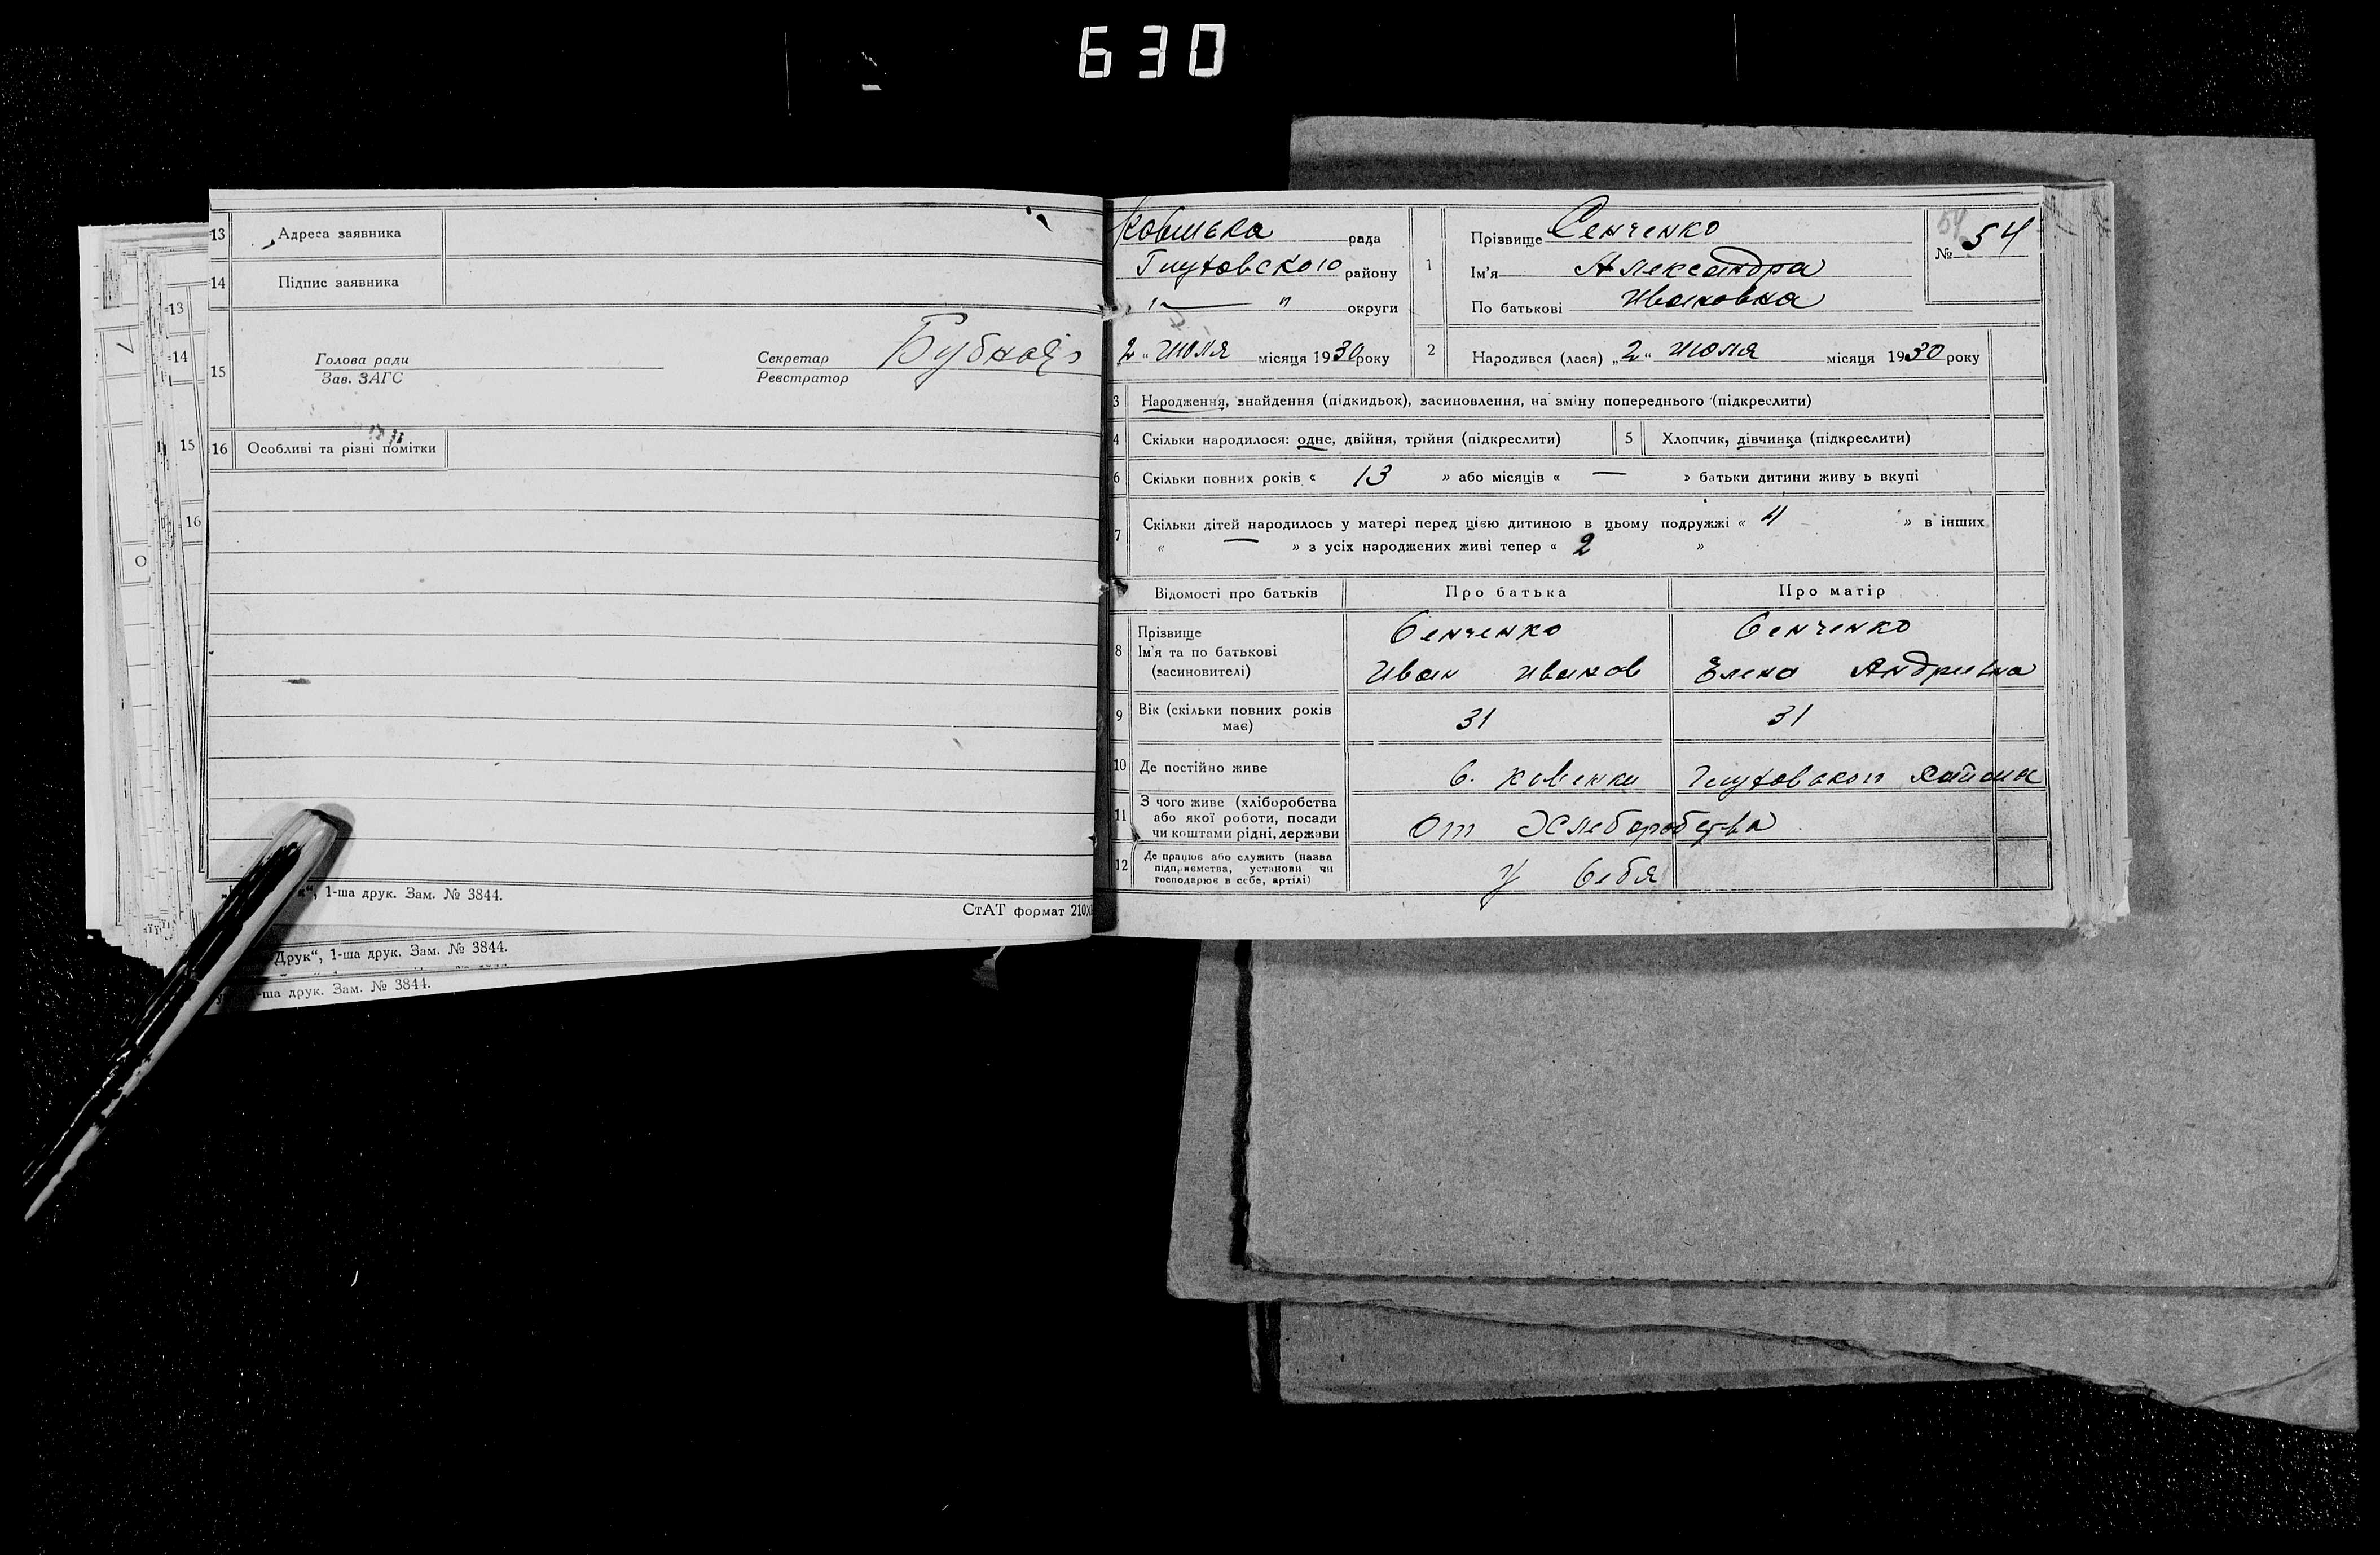 630
13 Адреса заявника
14 Підпис заявника
15 Голова ради
Зав. ЗАГС
Секретар
Реєстратор
16 Особливі та різні помітки
1-ша друк. Зам. № 3844.
СтАТ формат 210х
Друк“, 1-ша друк. Зам. № 3844.
-ша друк. Зам. № 3844.
13
14
15
16
рада
Глуховского району
„ — „ округи
2 „ Июля місяця 1930 року
1 Прізвище Сенченко
Ім'я Александра
По батькові Ивановна
№ 54
54
2 Народився (лася) „2“ Июля місяця 1930 року
3 Народження, знайдення (підкидьок), засиновлення, на зміну попереднього (підкреслити)
4 Скільки народилося: одне, двійня, трійня (підкреслити) 5 Хлопчик, дівчинка (підкреслити)
6 Скільки повних років « 13 » або місяців « — » батьки дитини живу ь вкупі
7 Скільки дітей народилось у матері перед цією дитиною в цьому подружжі « 4 » в інших
« — » з усіх народжених живі тепер « 2 »
Відомості про батьків Про батька Про матір
8 Прізвище
Ім'я та по батькові
(засиновителі)
Сенченко Сенченко
Иван Иванов Елена Андриевна
9 Вік (скільки повних років
має)
31 31
10 Де постійно живе
с. Глуховского Района
11 З чого живе (хліборобства
або якої роботи, посади
чи коштами рідні, держави
От Хлеборобства
12 Де працює або служить (назва
підприємства, установи чи
господарює в себе, артілі)
У Себя